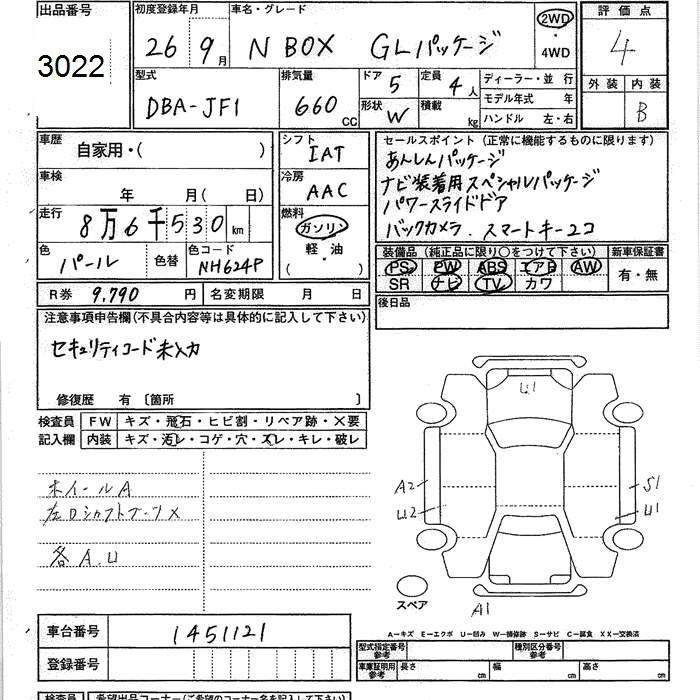 出品番号
3022
初度登録年月
26 9月
車名・グレード
N BOX GLパッケージ
2WD
・
4WD
評価点
4
外装 内装
B
型式
DBA-JF1
排気量
660 cc
ドア 5
形状 W
定員 4人
積載 kg
ディーラー・並 行
モデル年式 年
ハンドル 左・右
車歴
自家用・( )
車検
年 月( 日)
走行
8万6千530km
色
パール
色替
色コード
NH624P
シフト
IAT
冷房
AAC
燃料
ガソリン
軽・油
( )
セールスポイント(正常に機能するものに限ります)
あんしんパッケージ
ナビ装着用スペシャルパッケージ
パワースライドドア
バックカメラ. スマートキー2コ
装備品(純正品に限り○をつけて下さい)
PS PW ABS エアB AW
SR ナビ TV カワ
新車保証書
有・無
R券 9.790円
名変期限 月 日
後日品
注意事項申告欄(不具合内容等は具体的に記入して下さい)
セキュリティコード未入力
修復歴 有 〔箇所 〕
検査員
記入欄
FW キズ・飛石・ヒビ割・リペア跡・×要
内装 キズ・汚レ・コゲ・穴・スレ・キレ・破レ
ホイールA
左Dシャフトブーツ×
各A.U
U1
A2
U2
S1
U1
スペア
A1
A-キズ E-エクボ U-凹み W-補修跡 S-サビ C-腐食 XX-交換済
車台番号 1451121
登録番号
型式指定番号
参考
種別区分番号
参考
車庫証明用
参考
長さ cm 幅 cm 高さ cm
検査員 希望出品コーナー(ご希望のコーナー名を記入して下さい)